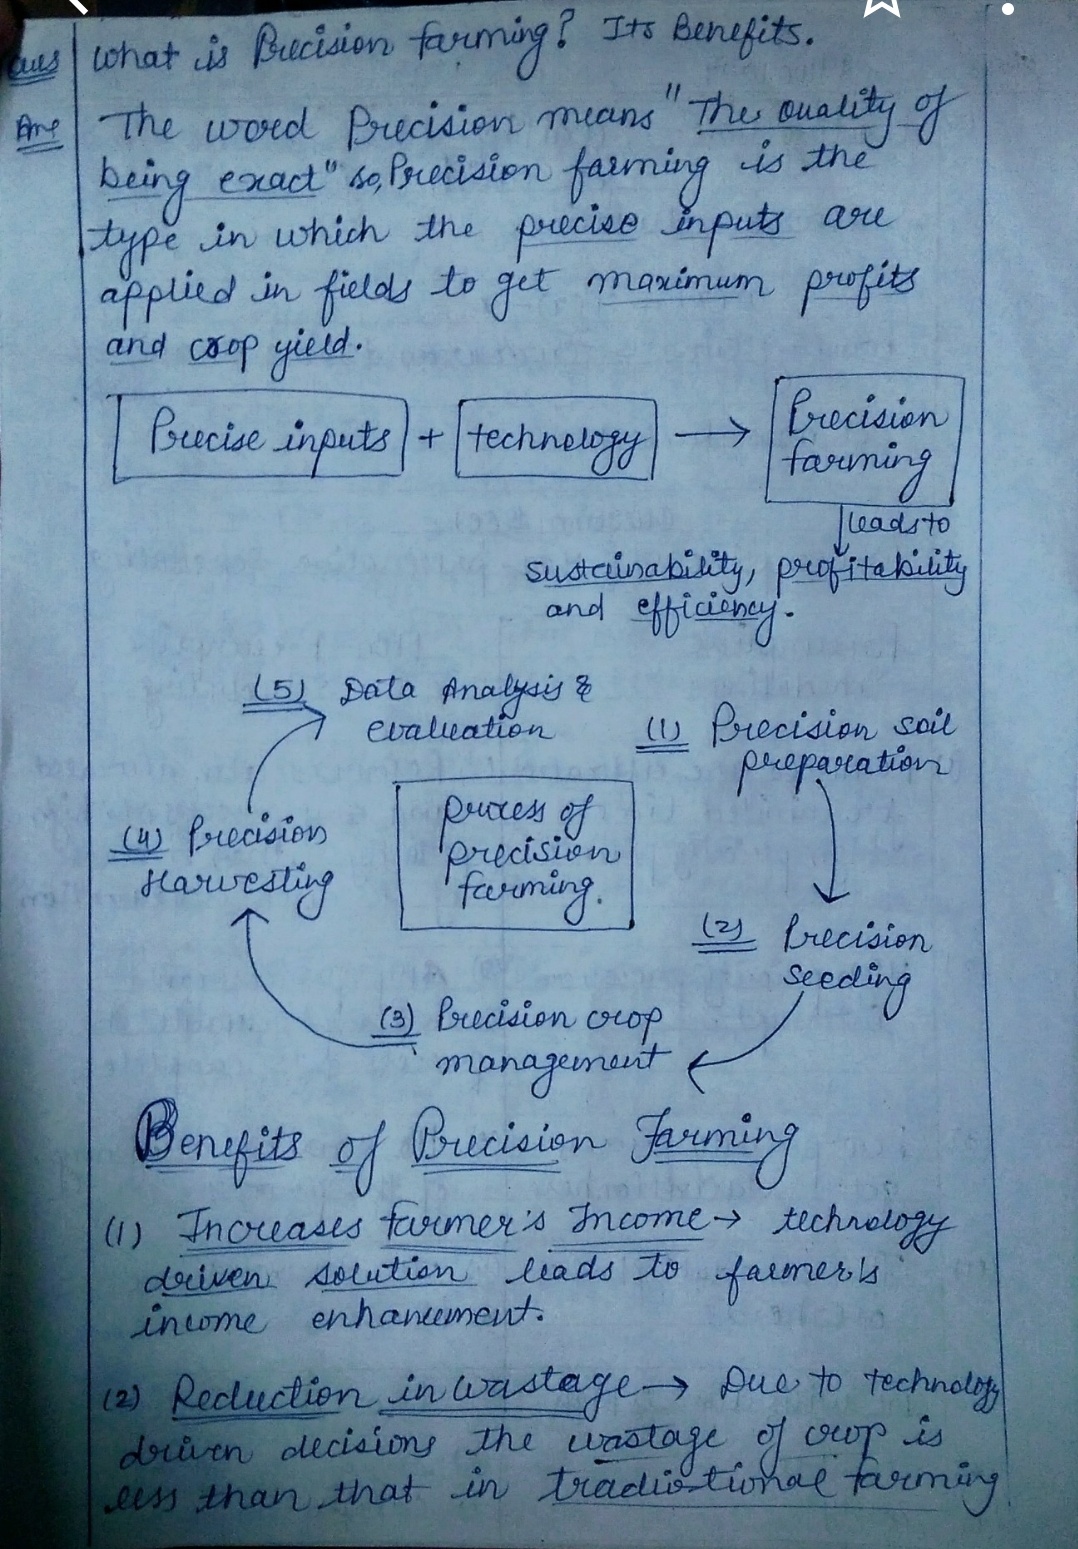 Ques What is Precision farming? Its Benefits.
Ans The word Precision means "The quality of
being exact" so, Precision farming is the
type in which the precise inputs are
applied in fields to get maximum profits
and crop yield.
Precise inputs + technology → Precision
farming
leads to
sustainability, profitability
and efficiency.
(5) Data Analysis &
evaluation
(1) Precision soil
preparation
process of
precision
farming.
(4) Precision
Harvesting
(2) Precision
seeding
(3) Precision crop
management
Benefits of Precision Farming
(1) Increases farmer's Income → technology
driven solution leads to farmer's
income enhancement.
(2) Reduction in wastage → Due to technology
driven decisions the wastage of crop is
less than that in tradiotional farming